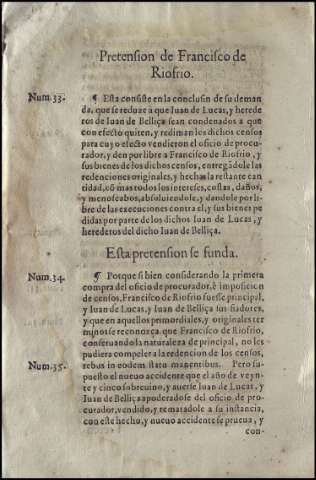 Pretension de Francisco de
Riofrio.
Num. 33. ¶ Esta consiste en la conclusin de su deman
da, que se reduce à que Iuan de Lucas, y herede
ros de Iuan de Belliça sean condenados a que
con efecto quiten, y rediman los dichos censos
para cuyo efecto vendieron el oficio de procu-
rador, y den por libre a Francisco de Riofrio, y
sus bienes de los dichos censos, entregãdole las
redenciones originales, y hecha la restante can
tidad, cõ mas todos los interesses, costas, daños,
y menoscabos, absoluiendole, y dandole por li-
bre de las execuciones contra el, y sus bienes pe
didas por parte de los dichos Iuan de Lucas, y
herederos del dicho Iuan de Belliça.
Esta pretension se funda.
Num. 34. ¶ Porque si bien considerando la primera
compra del oficio de procurador, è imposicion
de censos, Francisco de Riofrio fuesse principal,
y Iuan de Lucas, y Iuan de Belliça sus fiadores,
y que en aquellos primordiales, y originales ter
minos se reconozca que Francisco de Riofrio,
conseruando la naturaleza de principal, no les
pudiera compeler a la redencion de los censos,
Num. 35. rebus in eodem statu manentibus. Pero su-
puesto el nueuo accidente que el año de veyn-
te y cinco sobreuino, y auerse Iuan de Lucas, y
Iuan de Belliça apoderadose del oficio de pro-
curador, vendido, y rematadole a su instancia,
con este hecho, y nueuo accidente se prueua, y
con-